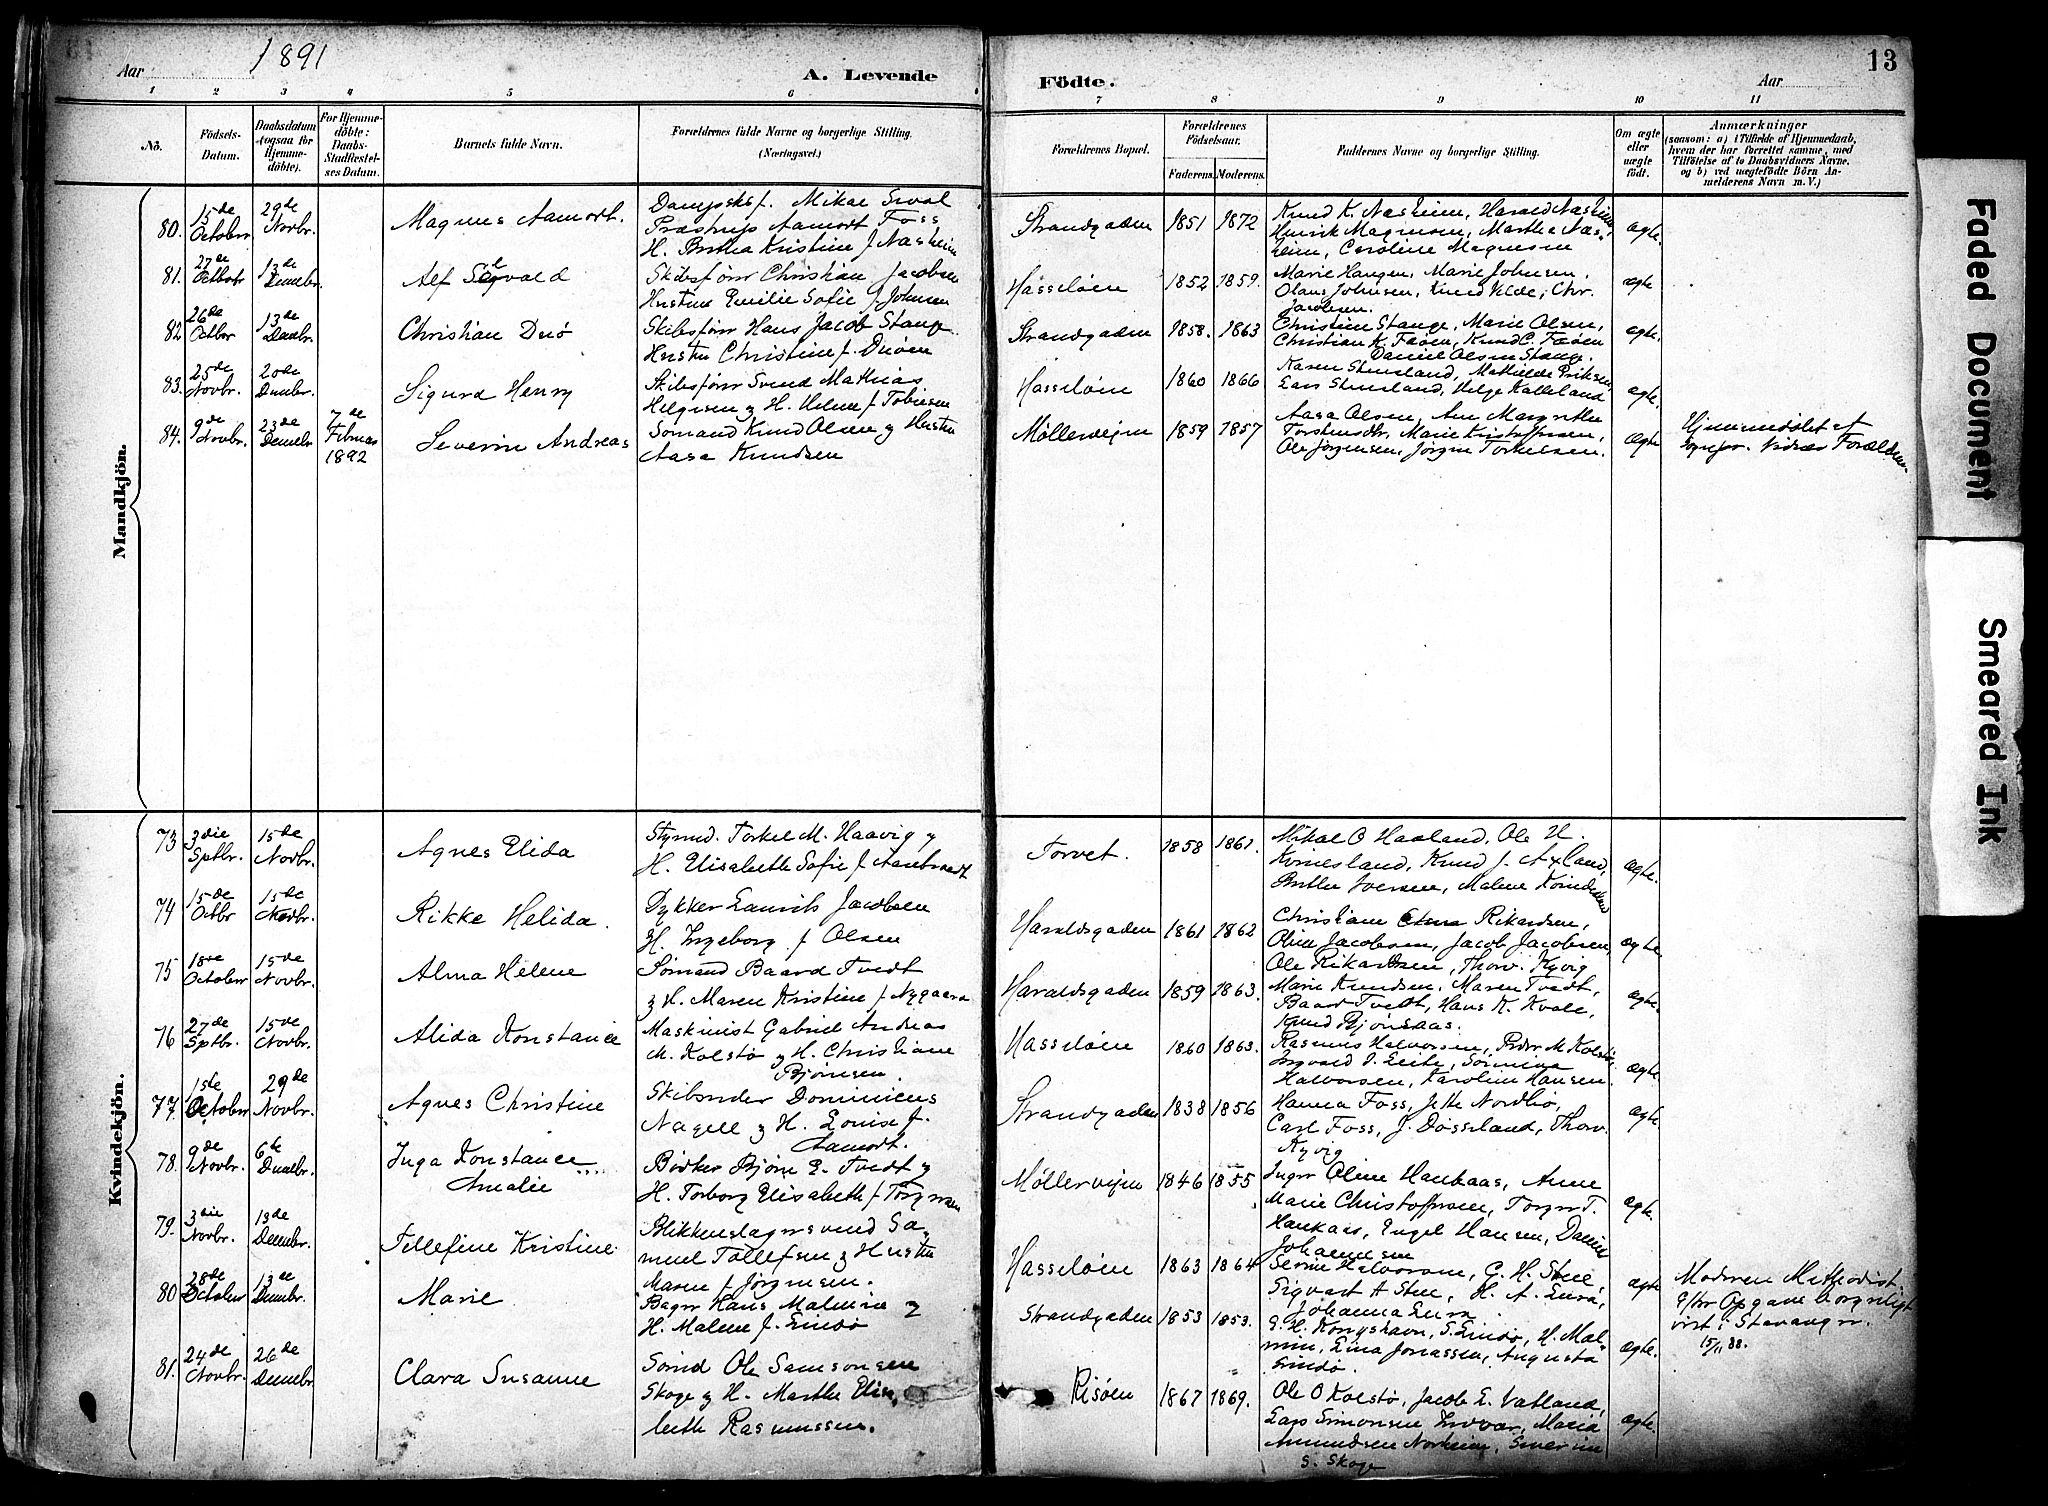 Aar 1891
A. Levende
Födte.
Aar
13
1 2 3 4 5 6
7 8 9 10 11
No.
Födsels-
Datum.
Daabsdatum
(ogsaa for
Hjemme-
döbte).
For Hjemme-
döbte:
Daabs-
Stadfæstel-
ses Datum.
Barnets fulde Navn.
Forældrenes fulde Navne og borgerlige Stilling.
(Næringsvei.)
Forældrenes Bopæl.
Forældrenes
Födselsaar.
Faderens.
Moderens.
Faddernes Navne og borgerlige Stilling.
Om ægte
eller
uægte
födt.
Anmærkninger
(saasom: a) i Tilfælde af Hjemmedaab,
hvem der har forrettet samme, med
Tilföielse af to Daabsvidners Navne.
og b) ved uægtefödte Börn An-
melderens Navn m. V.)
Mandkjön.
80. 15de Octobr 29de Novbr. Magnus Aamodt.
Dampsksf. Mikal
Aamodt Foss
H. Berthea Kristine f Næsheim
Strandgaden 1851 1872
Knud K. Næsheim, Harald Næsheim,
Henrik Magnusen, Marthea Næs-
heim, Caroline Magnusen
ægte.
81. 27de Octobr 13de Decembr. Alf Sigvald
Skibsförer Christian Jacobsen
Hustru Emilie Sofie f Johnsen
Hasseløen 1852 1859.
Marie Haugen, Marie Johnsen,
Olaus Johnsen, Knud Velde, Chr.
Jacobsen.
ægte
82 26de Octbr 13de Decbr. Christian Duø
Skibsförer Hans Jacob Stange
Hustru Christine f. Duøen
Strandgaden 1858. 1863
Christine Stange, Marie Olsen,
Christian K. Fæøen, Knud C. Fæøen
Daniel Olsen Stange.
ægte.
83. 25de Novbr. 20de Decmbr. Sigurd Henry
Skibsförer Svend Mathias
Helgesen & H. Helene f Tobiesen
Hasseløen 1860 1866
Karen Stensland, Mathilde Eriksen,
Lars Stensland, Helge Kalleland
ægte.
84. 9de Novbr. 23de Decmbr 7de Februar 1892 Severin Andreas
Sømand Knud Olsen & Hustru
Aasa Knudsen
Møllervejen 1859 1857
Aasa Olsen, Ane Margrethe
Torstensdtr, Marie Kristoffersen,
Ole Jørgensen, Jørgen Torkelsen.
ægte
Hjemmedøbt af
Sognepr. Vidner Forældrene
Kvindekjön.
73 3die Septbr. 15de Novbr. Agnes Elida
Styrmd. Torkel M. Haavig &
H. Elisabeth Sofie f.
Torvet. 1858 1861.
Mikal O Haaland, Ole H.
Kvinesland, Knud J. Axland,
Berthe Iversen, Malene
ægte.
74 15de Octbr 15de Novbr. Rikke Helida.
Dykker Laurits Jacobsen
H. Ingeborg f Olsen
Haraldsgaden 1861 1862
Christiane Rikardsen,
Oline Jacobsen, Jacob Jacobsen,
Ole Rikardsen, Thorv. Kyvig
ægte
75 18de Octobr 15de Novbr. Alma Helene
Sømand Baard Tvedt
& H. Maren Kristine f Nygaard
Haraldsgaden 1859 1863.
Marie Knudsen, Maren Tvedt,
Baard Tvedt, Hans K. Kvale,
Knud Bjønsaas.
ægte.
76 27de Septbr. 15de Novbr. Alida Konstance
Maskinist Gabriel Andreas
M. Kolstø & H. Christiane
Bjørnsen.
Hasseløen 1860 1863.
Rasmus Halvorsen, Peder M Kolstø
Ingvald J. Leite, Sørine
Halvorsen, Karoline Hansen.
ægte.
77. 1ste Octobr 29de Novbr. Agnes Christine
Skibsreder Dominicus
Nagell & H. Louise f.
Aamodt.
Strandgaden 1838 1856
Hanna Foss, Jette Nordbø,
Carl Foss, J. Døsseland, Thorv.
Kyvig
ægte.
78. 9de Novbr. 6te Decmbr. Inga Konstance
Amalie
Bødker Bjørn E. Tvedt &
H. Torborg Elisabeth f Torgersen
Møllervejen 1846 1855
Inger Oline Haukaas, Anne
Marie Christoffersen, Torger T.
Haukaas, Engel Hansen, Daniel
Johannesen
ægte.
79. 3die Novbr. 13de Decmbr. Tellefine Kristine
Blikkenslagersvend Sa-
muel Tollefsen & Hustru
Maren f Jørgensen.
Hasseløen 1863 1864
Serine Halvorsen, G. H. Stee,
Sigvart A Stee, H. A.
Johanna
ægte
Moderen Methodist
Efter Opgave borgerligt
viet i Stavanger.
15/11 88.
80 28de Octobr 13de Decmbr. Marie
Bager Hans Malmin &
H. Malene f. Lindø
Strandgaden 1853 1853.
G. H. Kongshavn, T. Lindø, H. Mal-
min, Lina Jonassen, Augusta
Lindø.
ægte.
81. 24de Novbr. 26de Decmbr. Clara Susanne
Sømd Ole Samsonsen
Skoge & H. Marthe Elisa
beth Rasmussen.
Risøen 1867 1869.
Ole O Kolstø, Jacob E. Vatland,
Lars Simonsen Indvær, Maria
Amundsen Norheim, Severine
S. Skoge
ægte.
Faded Document
Smeared Ink